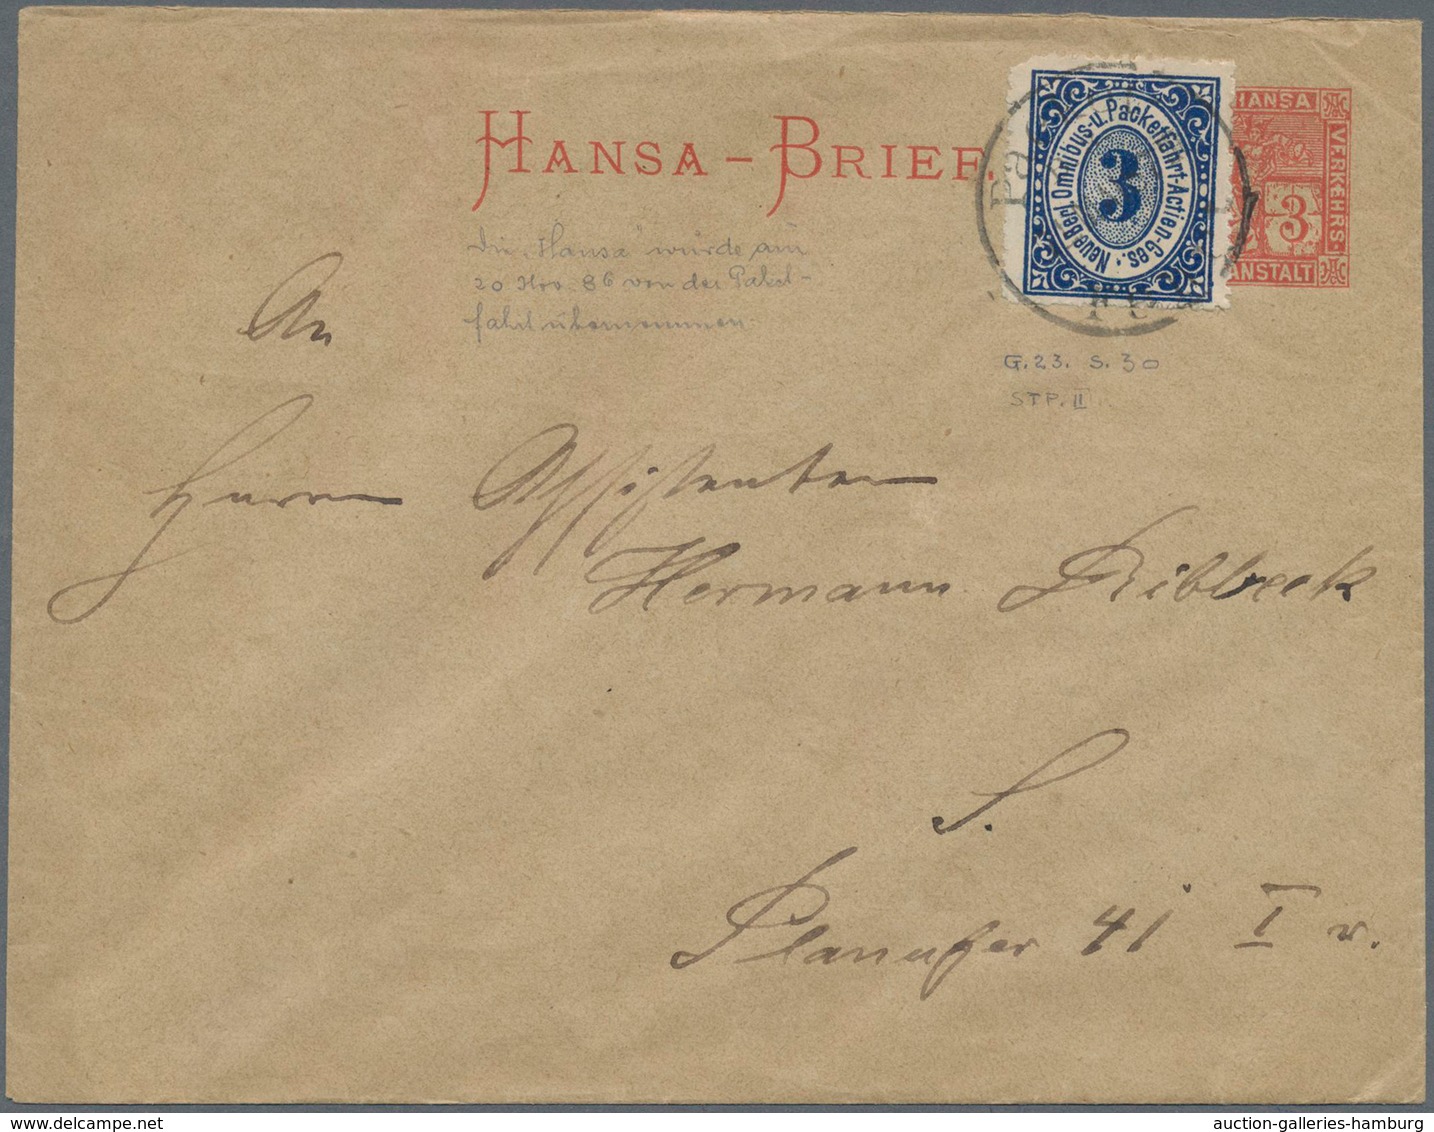 HANSA-BRIEF.
HANSA
VERKEHRS-
ANSTALT
3
Neue Berl. Omnibus-u. Packetfahrt-Actien-Ges.
3
Die "Hansa" wurde am
20 Nov. 86 von der Paket-
fahrt übernommen.
G.23. S.30
STP. II
An
Herrn Assistenten
Hermann Ribbeck
S.
Planufer 41 I r.
auction-galleries-hamburg